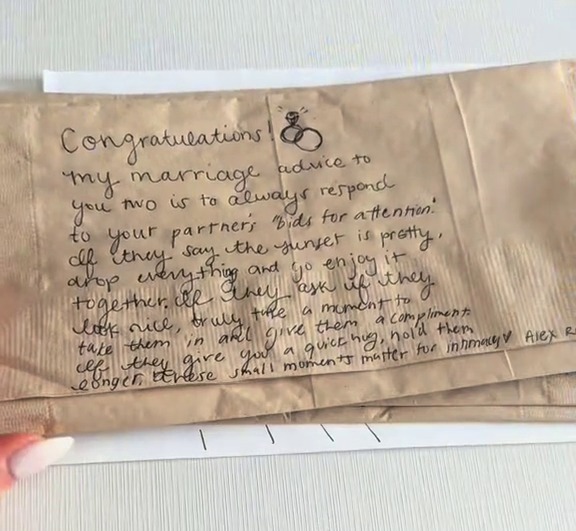 Congratulations!
my marriage advice to
you two is to always respond
to your partner's "bids for attention."
If they say the sunset is pretty,
drop everything and go enjoy it
together. If they ask if they
look nice, truly take a moment to
take them in and give them a compliment
If they give you a quick hug, hold them
longer. These small moments matter for intimacy♥ Alex R